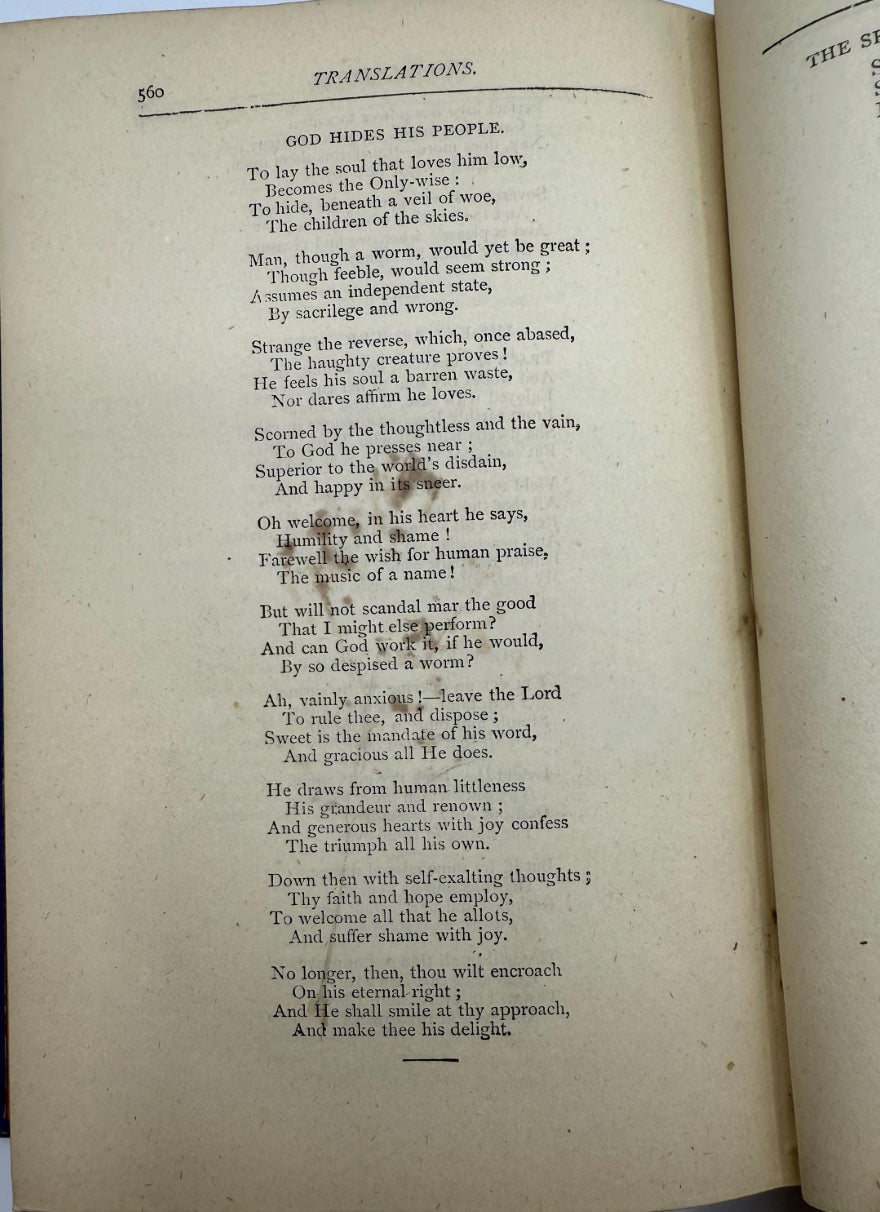 560
TRANSLATIONS.
GOD HIDES HIS PEOPLE.
To lay the soul that loves him low,
Becomes the Only-wise :
To hide, beneath a veil of woe,
The children of the skies.
Man, though a worm, would yet be great ;
Though feeble, would seem strong ;
Assumes an independent state,
By sacrilege and wrong.
Strange the reverse, which, once abased,
The haughty creature proves !
He feels his soul a barren waste,
Nor dares affirm he loves.
Scorned by the thoughtless and the vain,
To God he presses near ;
Superior to the world's disdain,
And happy in its sneer.
Oh welcome, in his heart he says,
Humility and shame !
Farewell the wish for human praise,
The music of a name !
But will not scandal mar the good
That I might else perform?
And can God work it, if he would,
By so despised a worm?
Ah, vainly anxious !—leave the Lord
To rule thee, and dispose ;
Sweet is the mandate of his word,
And gracious all He does.
He draws from human littleness
His grandeur and renown ;
And generous hearts with joy confess
The triumph all his own.
Down then with self-exalting thoughts ;
Thy faith and hope employ,
To welcome all that he allots,
And suffer shame with joy.
No longer, then, thou wilt encroach
On his eternal right ;
And He shall smile at thy approach,
And make thee his delight.
THE